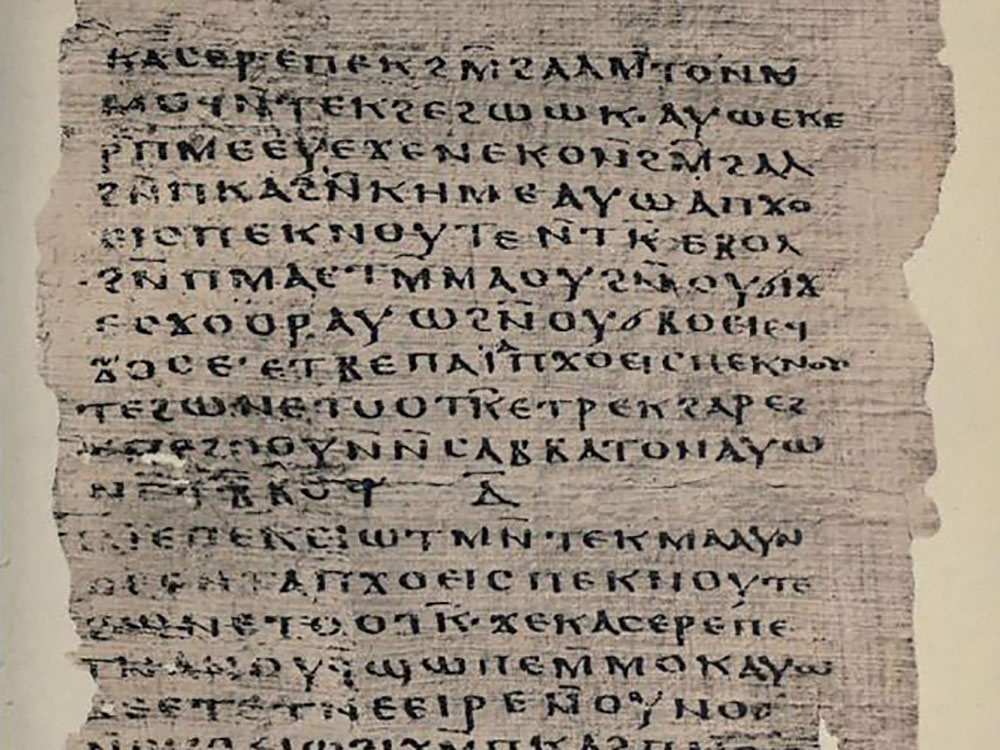 ⲕⲁⲥⲉⲣⲉⲡⲉⲕϩⲙ̄ϩⲁⲗⲙ̄ⲧⲟⲛⲙ
ⲙⲟϥⲛ̄ⲧⲉⲕϩⲉϩⲱⲱⲕ· ⲁⲩⲱⲉⲕⲉ
ⲣ̄ⲡⲙⲉⲉⲩⲉϫⲉⲛⲉⲕⲟⲛ̄ϩⲙ̄ϩⲁⲗ
ϩⲙ̄ⲡⲕⲁϩⲛ̄ⲕⲏⲙⲉⲁⲩⲱⲁⲡϫⲟ
ⲉⲓⲥⲡⲉⲕⲛⲟⲩⲧⲉⲛ̄ⲧⲕ̄ⲉⲃⲟⲗ
ϩⲙ̄ⲡⲙⲁⲉⲧⲙ̄ⲙⲁⲟⲩϩⲛ̄ⲟⲩϭⲓϫ
ⲉⲥϫⲟⲟⲣ.ⲁⲩⲱϩⲛ̄ⲟⲩϭⲃⲟⲉⲓⲉϥ
ϫⲟⲥⲉ·ⲉⲧⲃⲉⲡⲁⲓ̈ⲁⲡϫⲟⲉⲓⲥⲡⲉⲕⲛⲟⲩ
ⲧⲉϩⲱⲛⲉⲧⲟⲟⲧⲕ̄ⲉⲧⲣⲉⲕϩⲁⲣⲉϩ
ⲉⲡⲉϩⲟⲟⲩⲛⲛ̄ⲥⲁⲃⲃⲁⲧⲟⲛⲁⲩⲱ
ⲛⲅ̄ⲧⲃ̄ⲃⲟϥ ⲇ̄
ⲧⲁⲓⲉⲡⲉⲕⲉⲓⲱⲧⲙⲛ̄ⲧⲉⲕⲙⲁⲁⲩⲛ
ⲑⲉⲉⲛⲧⲁⲡϫⲟⲉⲓⲥⲡⲉⲕⲛⲟⲩⲧⲉ
ϩⲱⲛⲉⲧⲟⲟⲧⲕ̄·ϫⲉⲕⲁⲥⲉⲣⲉⲡⲉ
ⲧⲛⲁⲛⲟⲩϥϣⲱⲡⲉⲙ̄ⲙⲟⲕⲁⲩⲱ
ϫⲉⲉⲧⲉⲧⲛⲉⲉⲓⲣⲉⲛ̄ⲟⲩⲛⲟϭ